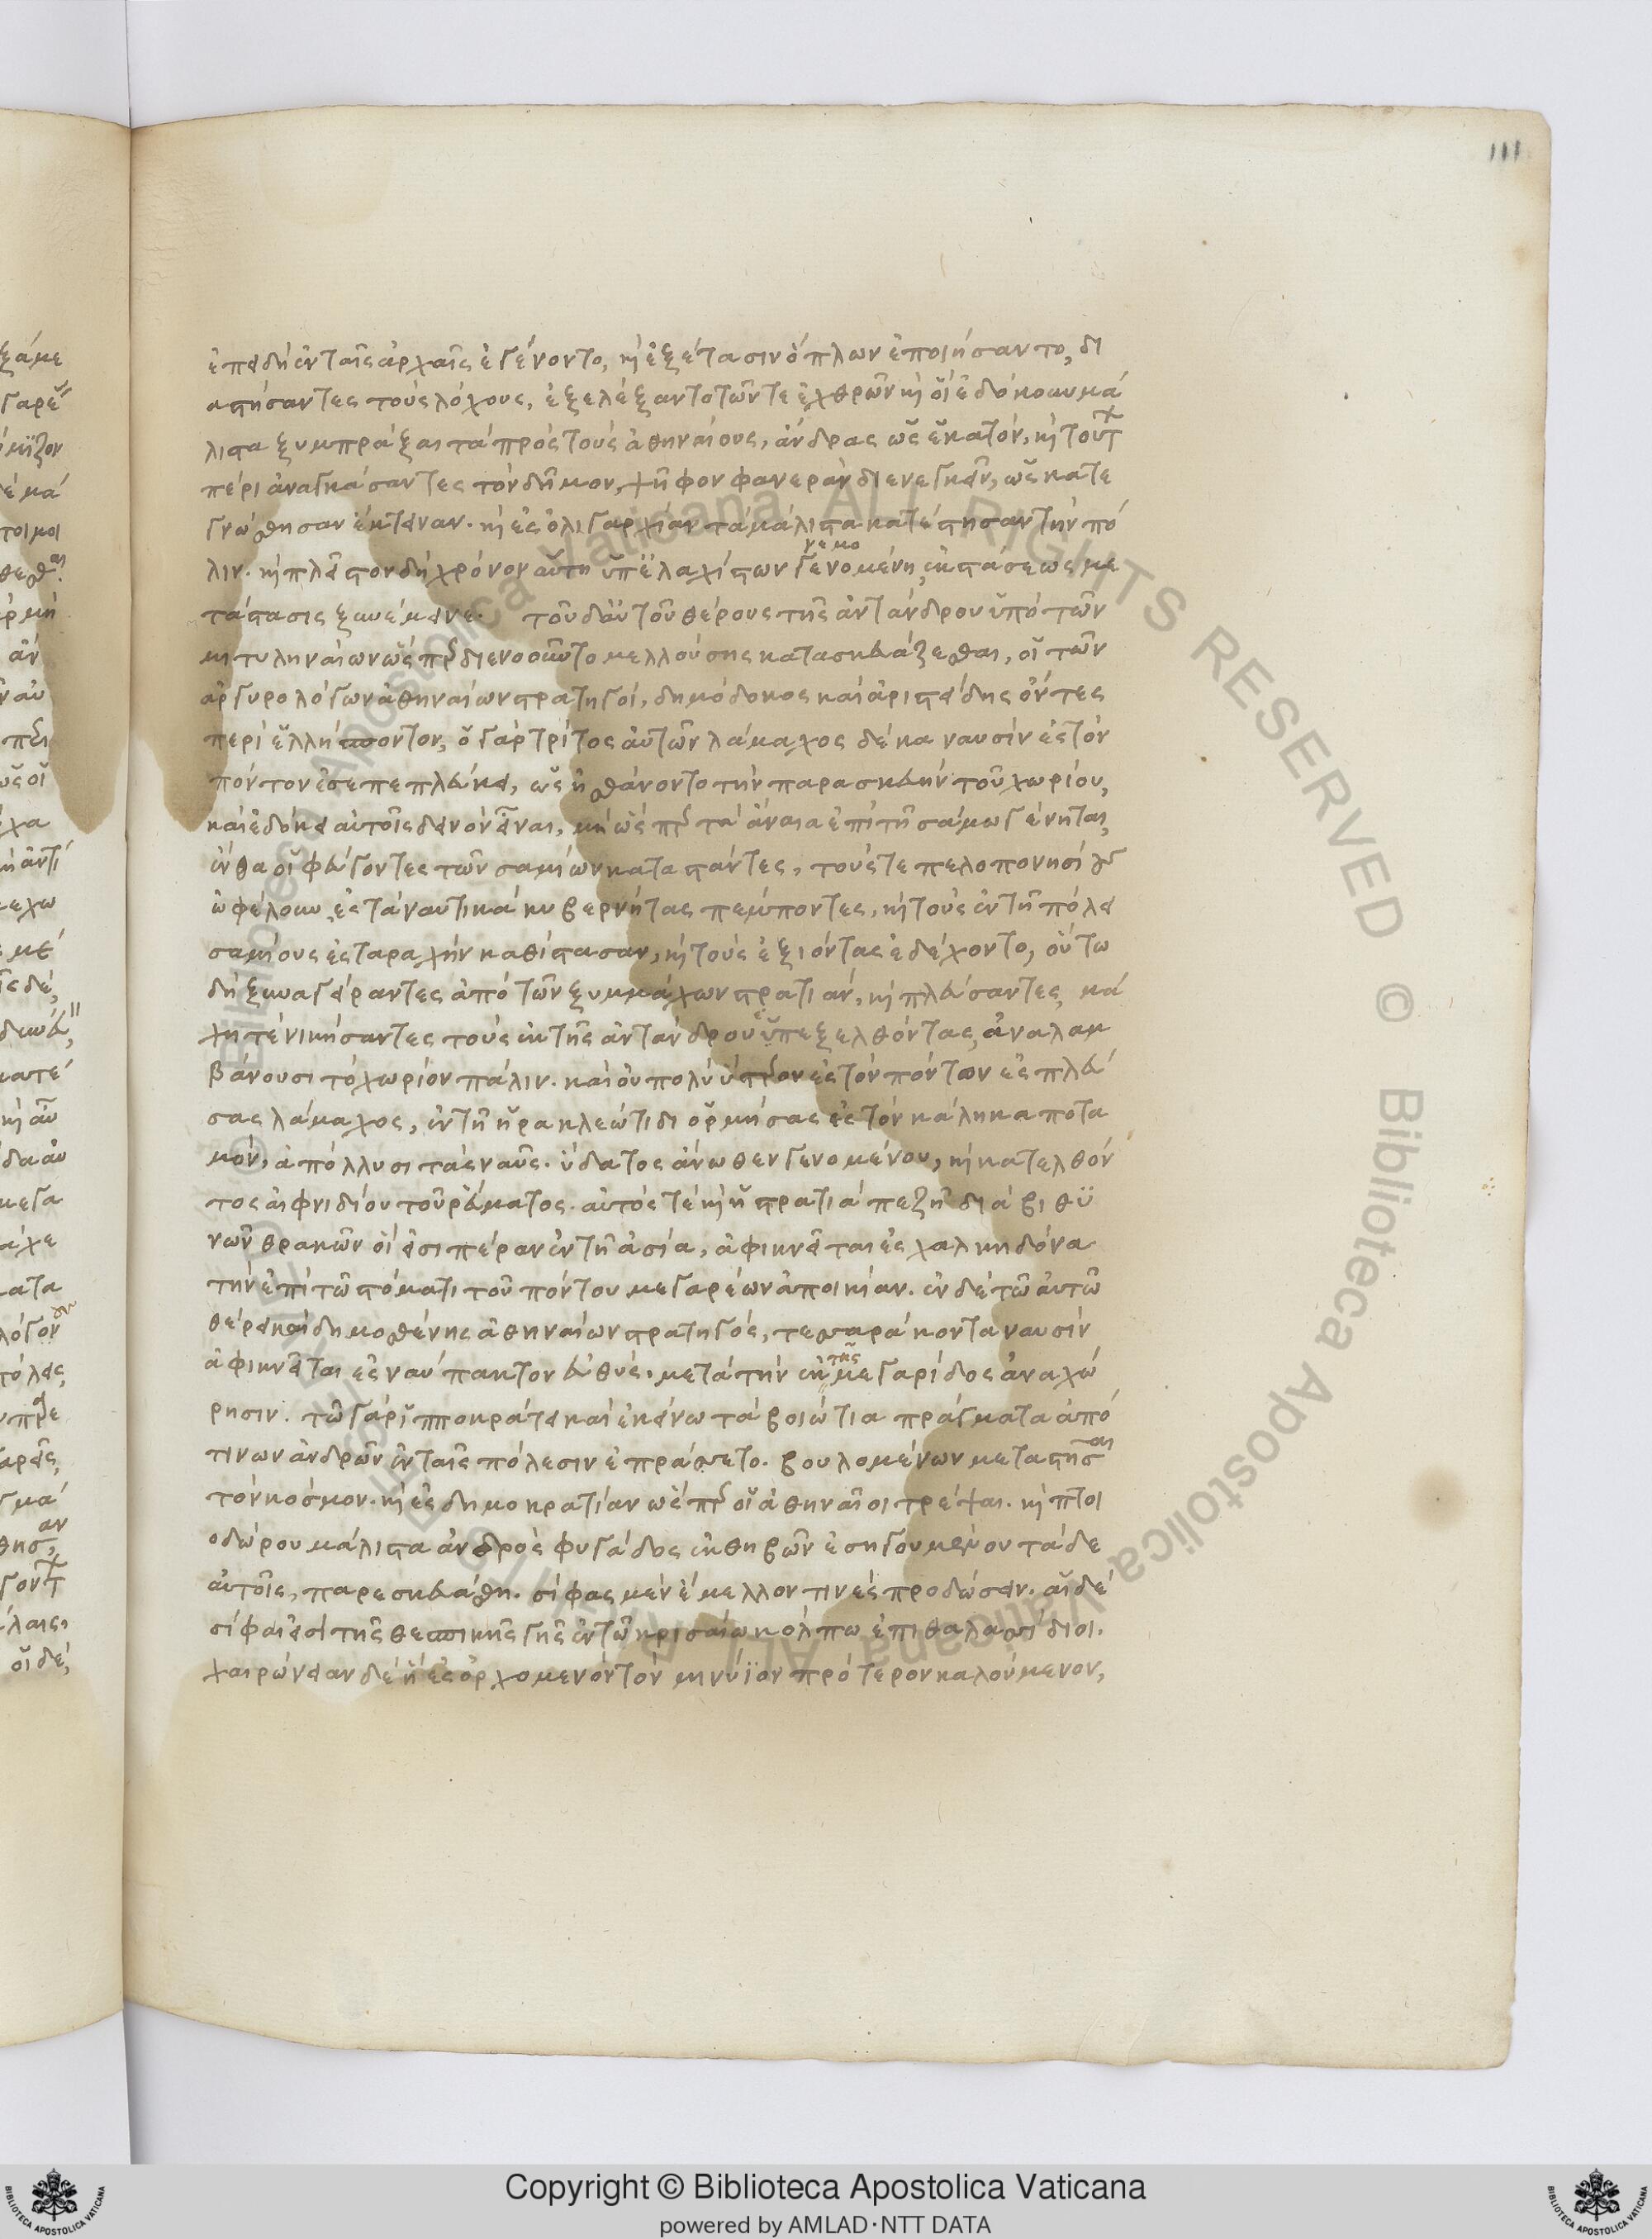 111
ἐπειδὴ ἐν ταῖς ἀρχαῖς ἐγένοντο, κὶ ἐξέτασιν ὅπλων ἐποιήσαντο, δι
αστήσαντες τοὺς λόχους, ἐξελέξαντο τῶν τε ἐχθρῶν κὶ οἳ ἐδόκουν μά
λιστα ξυμπράξαι τὰ πρὸς τοὺς ἀθηναίους, ἄνδρας ὡς ἑκατόν, κὶ τουτ
πέρι ἀναγκάσαντες τὸν δῆμον, ψῆφον φανερὰν διενεγκεῖν, ὡς κατε
γνώσθησαν ἔκτειναν. κὶ ἐς ὀλιγαρχίαν τὰ μάλιστα κατέστησαν τὴν πό
λιν. κὶ πλεῖστον δὴ χρόνον αὕτη ὑπ' ἐλαχίστων γενομένη, ἐκ στάσεως με
νεμο
τάστασις ξυνέμεινε. τοῦ δ' αὐτοῦ θέρους τῆς ἀντάνδρου ὑπὸ τῶν
μιτυληναίων ὥσπερ διενοοῦντο μελλούσης κατασκευάζεσθαι, οἱ τῶν
ἀργυρολόγων ἀθηναίων στρατηγοί, δημόδοκος καὶ ἀριστείδης ὄντες
περὶ ἑλλήσποντον, ὁ γὰρ τρίτος αὐτῶν λάμαχος δέκα ναυσὶν ἐς τὸν
πόντον ἐσεπεπλεύκει, ὡς ᾐσθάνοντο τὴν παρασκευὴν τοῦ χωρίου,
καὶ ἐδόκει αὐτοῖς δεινὸν εἶναι, μὴ ὥσπερ τὰ ἄναια ἐπὶ τῆ σάμω γένηται,
ἔνθα οἱ φεύγοντες τῶν σαμίων καταστάντες, τούς τε πελοπονησίους
ὠφέλουν ἐς τὰ ναυτικὰ κυβερνήτας πέμποντες, κὶ τοὺς ἐν τῆ πόλει
σαμίους ἐς ταραχὴν καθίστασαν, κὶ τοὺς ἐξιόντας ἐδέχοντο, οὕτω
δὴ ξυναγείραντες ἀπὸ τῶν ξυμμάχων στρατιάν, κὶ πλεύσαντες, μά
χη τε νικήσαντες τοὺς ἐκ τῆς ἀντάνδρου ὑπεξελθόντας, ἀναλαμ
βάνουσι τὸ χωρίον πάλιν. καὶ οὐ πολὺ ὕστερον ἐς τὸν πόντον ἐσπλεύ
σας λάμαχος, ἐν τῆ ἡρακλεώτιδι ὁρμήσας ἐς τὸν κάληκα ποτα
μόν, ἀπόλλυσι τὰς ναῦς. ὕδατος ἄνωθεν γενομένου, κὶ κατελθόν
τος αἰφνιδίου τοῦ ῥεύματος. αὐτός τε κὶ ἡ στρατιὰ πεζῆ διὰ βιθυ
νῶν θρακῶν οἵ εἰσι πέραν ἐν τῆ ἀσία, ἀφικνεῖται ἐς χαλκηδόνα
τὴν ἐπὶ τῶ στόματι τοῦ πόντου μεγαρέων ἀποικίαν. ἐν δὲ τῶ αὐτῶ
θέρει καὶ δημοσθένης ἀθηναίων στρατηγός, τεσσαράκοντα ναυσὶν
ἀφικνεῖται ἐς ναύπακτον εὐθύς. μετὰ τὴν ἐκ τῆς μεγαρίδος ἀναχώ
ρησιν. τῶ γὰρ ἱπποκράτει καὶ ἐκείνω τὰ βοιώτια πράγματα ἀπό
τινων ἀνδρῶν ἐν ταῖς πόλεσιν ἐπράσσετο. βουλομένων μεταστῆσαι
τὸν κόσμον. κὶ ἐς δημοκρατίαν ὥσπερ οἱ ἀθηναῖοι τρέψαι. κὶ πτοι
οδώρου μάλιστα ἀνδρὸς φυγάδος ἐκ θηβῶν ἐσηγουμένου τάδε
αὐτοῖς, παρεσκευάσθη. σίφας μὲν ἔμελλόν τινες προδώσειν. αἱ δὲ
σίφαι εἰσὶ τῆς θεσπικῆς γῆς ἐν τῶ κρισαίω κόλπω ἐπιθαλασσίδιοι.
χαιρώνειαν δὲ ἣ ἐς ὀρχομενὸν τὸν μινύϊον πρότερον καλούμενον,
Biblioteca Apostolica Vaticana ALL RIGHTS RESERVED ©
Copyright © Biblioteca Apostolica Vaticana
powered by AMLAD·NTT DATA
BIBLIOTECA APOSTOLICA VATICANA
BIBLIOTECA APOSTOLICA VATICANA